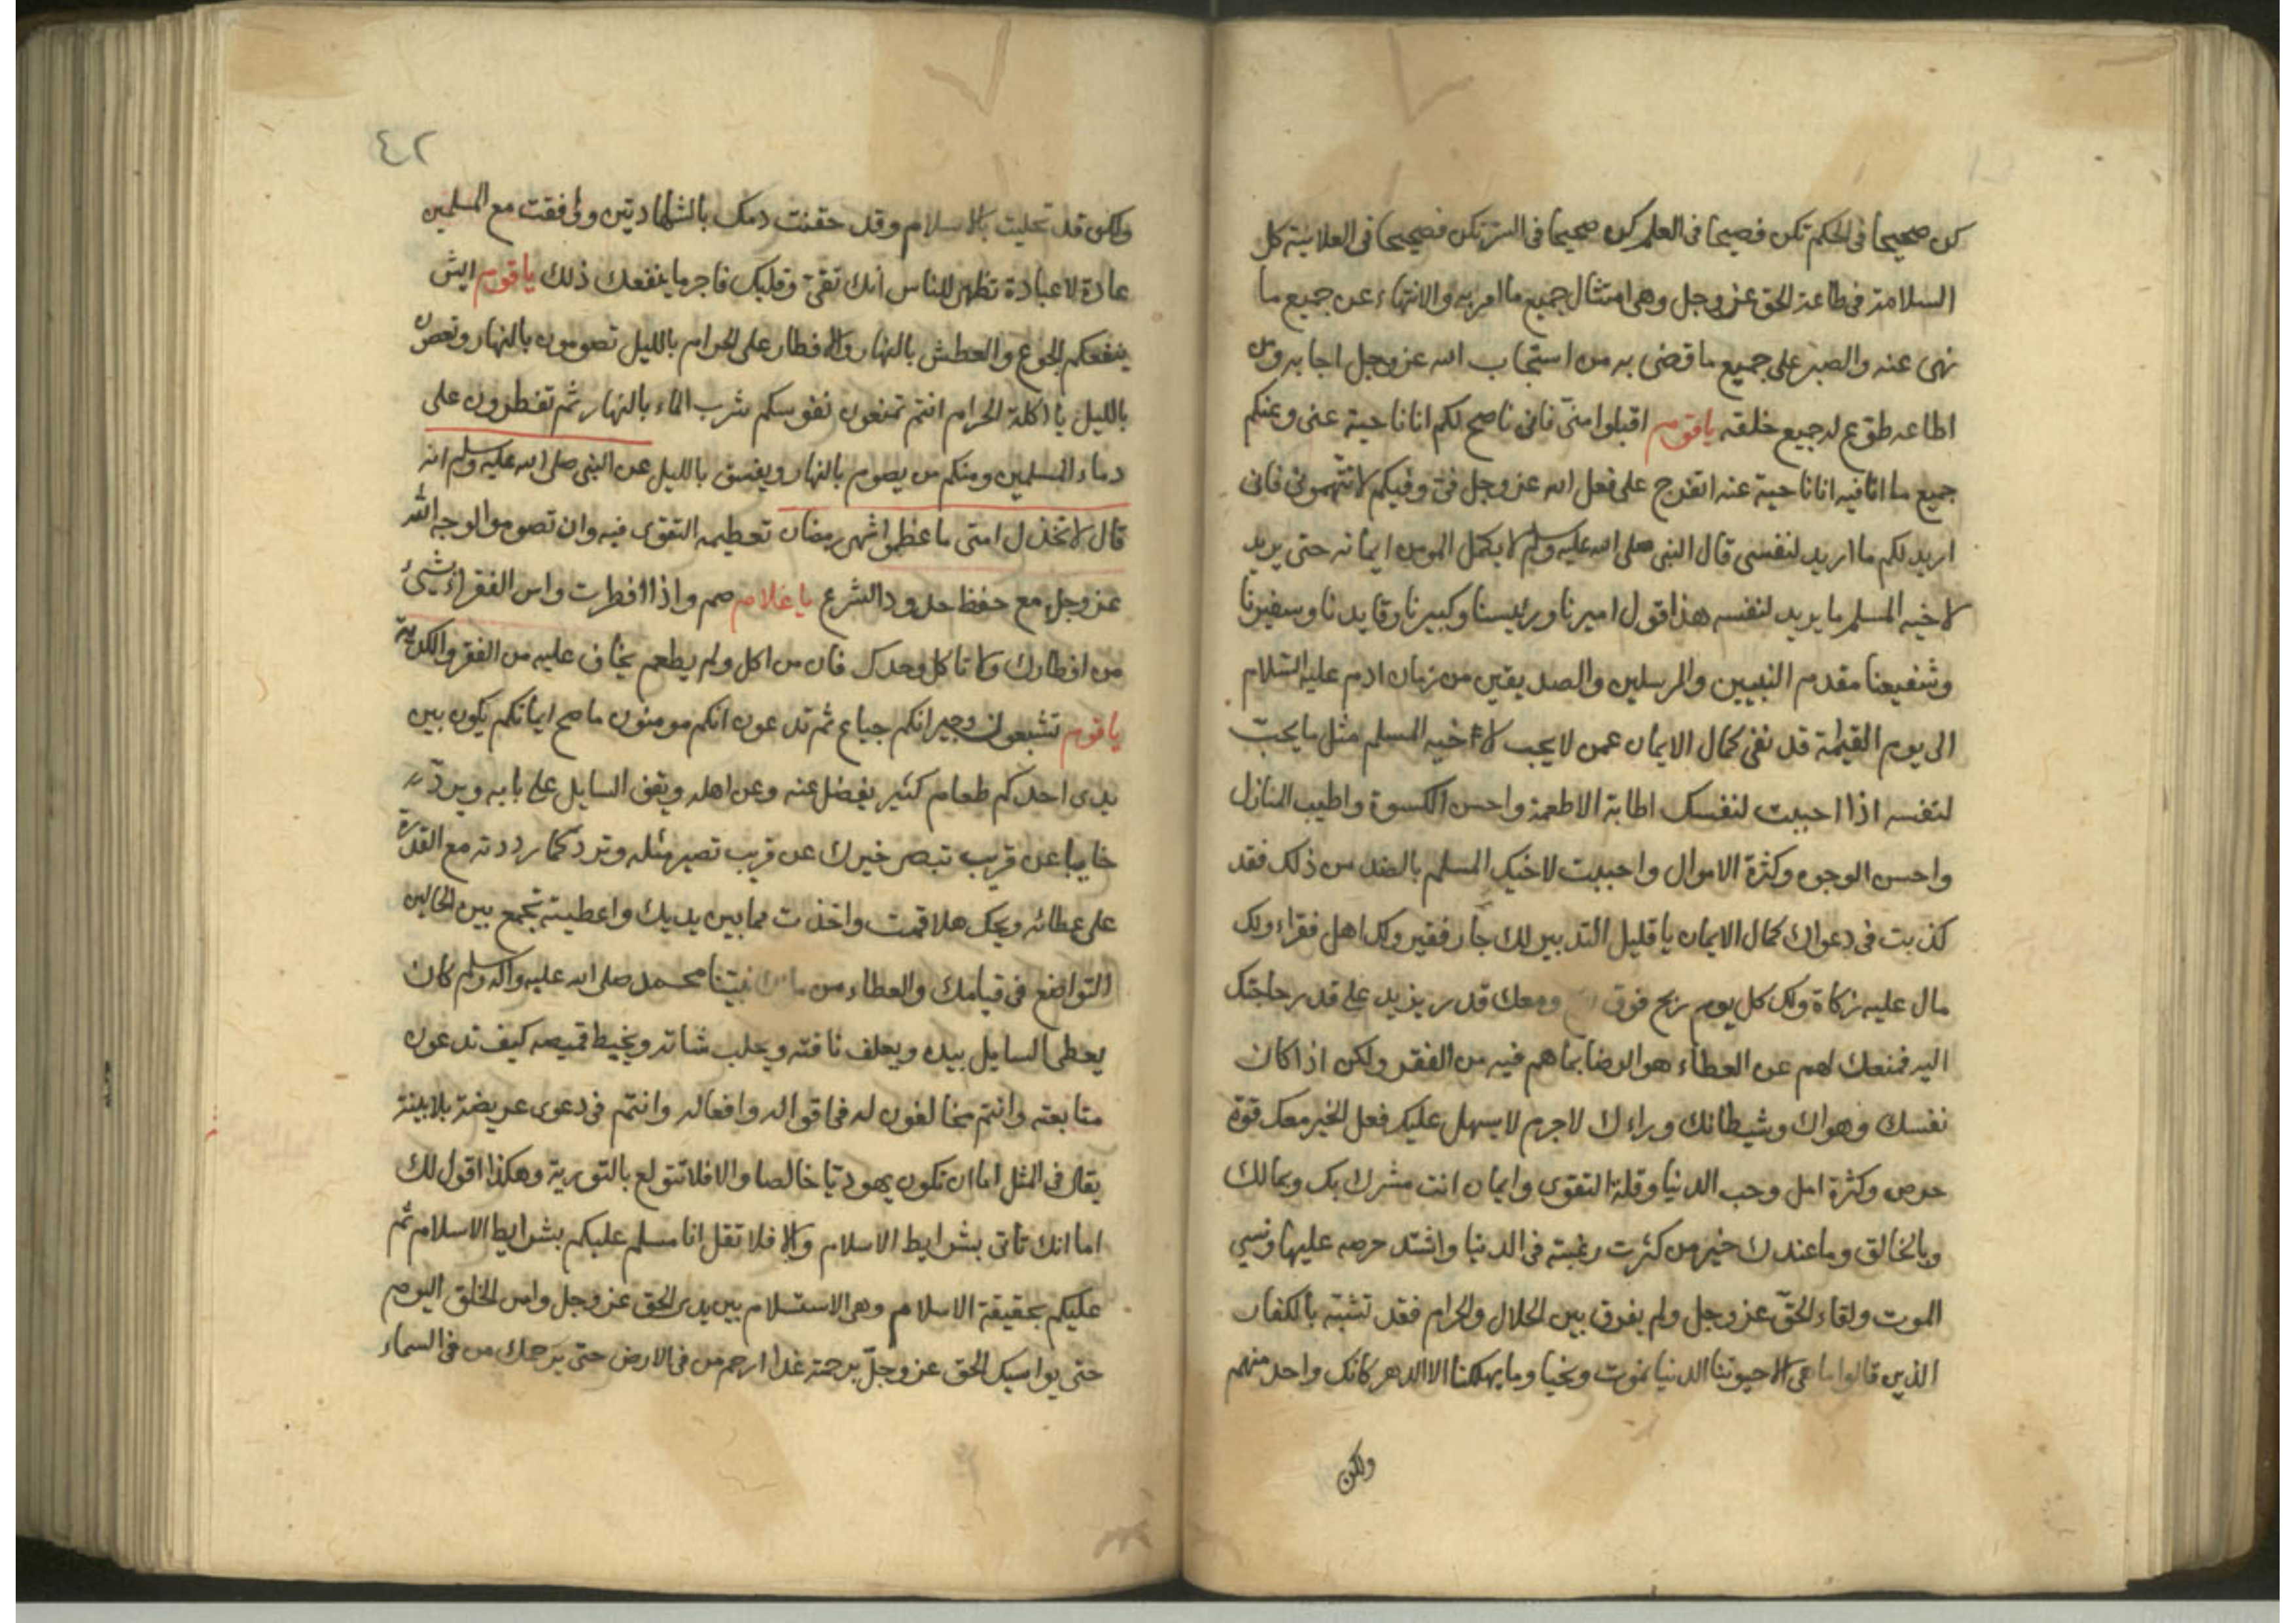 كن صحيحا في الحكم تكن فصيحا في العلم كن صحيحا في السر تكن فصيحا في العلانية كل
السلامة في طاعة الحق عز وجل وهي امتثال جميع ما امر به والانتهاء عن جميع ما
نهى عنه والصبر على جميع ما قضى به من استجاب الله عز وجل اجابه ومن
اطاعه طوع له جميع خلقه يا قوم اقبلوا مني فاني ناصح لكم انا ناحية عني وعنكم
جميع ما انا فيه انا ناحية عنه اتفرج على فعل الله عز وجل في وفيكم لا تتهموني فاني
اريد لكم ما اريد لنفسي قال النبي صلى الله عليه وسلم لا يكمل المومن ايمانه حتى يريد
لاخيه المسلم ما يريد لنفسه هذا قول اميرنا ورئيسنا وكبيرنا وقايدنا وسفيرنا
وشفيعنا مقدم النبيين والمرسلين والصديقين من زمان ادم عليه السلام
الى يوم القيمة قد نفى كمال الايمان عمن لا يحب لاخيه المسلم مثل ما يحب
لنفسه اذا احببت لنفسك اطابة الاطعمة واحسن الكسوة واطيب المنازل
واحسن الوجوه وكثرة الاموال واحببت لاخيك المسلم بالضد من ذلك فقد
كذبت في دعواك كمال الايمان يا قليل التدبير لك جار فقير ولك اهل فقراء ولك
مال عليه زكاة ولك كل يوم ربح فوق ومعك قدر يزيد على قدر حاجتك
اليه فمنعك لهم عن العطاء هو الرضا بما هم فيه من الفقر ولكن اذا كان
نفسك وهواك وشيطانك وراءك لا جرم لا يسهل عليك فعل الخير معك قوة
حرص وكثرة امل وحب الدنيا وقلة التقوى وايمان انت مشرك بك وبمالك
وبالخالق وما عندك خير من كثرت رغبته في الدنيا واشتد حرصه عليها ونسي
الموت ولقاء الحق عز وجل ولم يفرق بين الحلال والحرام فقد تشبه بالكفار
الذين قالوا ما هي الا حيوتنا الدنيا نموت ونحيا وما يهلكنا الا الدهر كانك واحد منهم
ولكن
٤٢
ولكن قد تحليت بالاسلام وقد حقنت دمك بالشهادتين ووافقت مع المسلمين
عادة لا عبادة تظهر للناس انك تقي وقلبك فاجر ما ينفعك ذلك يا قوم ايش
ينفعكم الجوع والعطش بالنهار والافطار على الحرام بالليل تصومون بالنهار وتعصون
بالليل يا اكلة الحرام انتم تمنعون نفوسكم شرب الماء بالنهار ثم تفطرون على
دماء المسلمين ومنكم من يصوم بالنهار ويفسق بالليل عن النبي صلى الله عليه وسلم انه
قال لا تخذل امتي ما عظموا شهر رمضان تعظيمه التقوى فيه وان تصوموا لوجه الله
عز وجل مع حفظ حدود الشرع يا غلام صم واذا افطرت واس الفقراء بشيء
من افطارك ولا تاكل وحدك فان من اكل ولم يطعم يخاف عليه من الفقر والكدية
يا قوم تشبعون وجيرانكم جياع ثم تدعون انكم مومنون ما صح ايمانكم يكون بين
يدي احدكم طعام كثير يفضل عنه وعن اهله ويقف السايل على بابه ويرد
خايبا عن قريب تبصر خبرك عن قريب تصير مثله وترد كما رددته مع القدرة
على عطائه ويحك هلا قمت واخذت مما بين يديك واعطيته تجمع بين الحالين
التواضع في قيامك والعطاء من مالك نبينا محمد صلى الله عليه واله وسلم كان
يعطي السايل بيده ويعلف ناقته ويحلب شاته ويخيط قميصه كيف تدعون
متابعته وانتم مخالفون له في اقواله وافعاله وانتم في دعوى عريضة بلا بينة
يقال في المثل اما ان تكون يهوديا خالصا والا فلا تتولع بالتورية وهكذا اقول لك
اما انك تاتي بشرايط الاسلام والا فلا تقل انا مسلم عليكم بشرايط الاسلام ثم
عليكم بحقيقة الاسلام وهي الاستسلام بين يدي الحق عز وجل واس الخلق اليوم
حتى يواسيك الحق عز وجل برحمته غدا ارحم من في الارض حتى يرحمك من في السماء